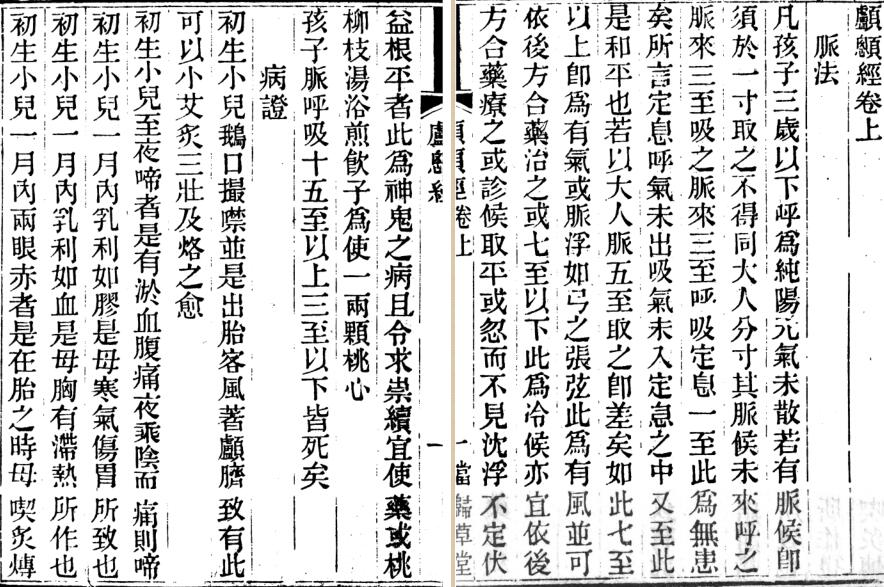 顱顖經卷上
脈法
凡孩子三歲以下呼爲純陽元氣未散若有脈候卽
須於一寸取之不得同大人分寸其脈候未來呼之
脈來三至吸之脈來三至呼吸定息一至此爲無患
矣所言定息呼氣未出吸氣未入定息之中又至此
是和平也若以大人脈五至取之卽差矣如此七至
以上卽爲有氣或脈浮如弓之張弦此爲有風並可
依後方合藥治之或七至以下此爲冷候亦宜依後
方合藥療之或診候取平或忽而不見沈浮不定伏
顱顖經卷上 一 當歸草堂
顱顖經 一
益根平者此爲神鬼之病且令求祟續宜使藥或桃
柳枝湯浴煎飲子爲使一兩顆桃心
孩子脈呼吸十五至以上三至以下皆死矣
病證
初生小兒鵝口撮噤並是出胎客風著顱臍致有此
可以小艾灸三壯及烙之愈
初生小兒至夜啼者是有淤血腹痛夜乘陰而痛則啼
初生小兒一月內乳利如膠是母寒氣傷胃所致也
初生小兒一月內乳利如血是母胸有滯熱所作也
初生小兒一月內兩眼赤者是在胎之時母喫炙煿